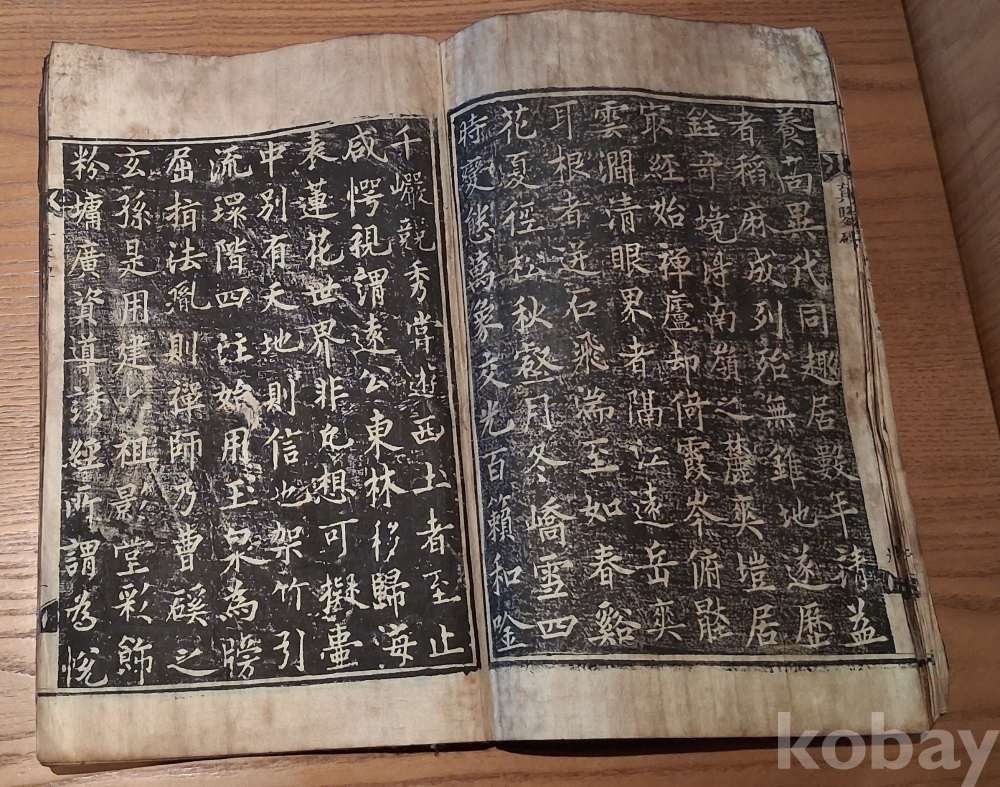 養尚異代同趣居數年請益
者稻麻成列殆無錐地遂歷
銓奇境得南嶺之麓爽塏居
冣經始禪廬却倚霞岑俯壓
雲澗清眼界者隔江遠岳爽
耳根者迸石飛湍至如春谿
花夏徑松秋壑月冬嶠雪四
時變態萬象交光百籟和唫
千巖競秀嘗遊西土者至止
咸愕視謂遠公東林移歸海
表蓮花世界非凡想可擬壷
中別有天地則信也架竹引
流環階四注始用玉泉為牓
屈指法胤則禪師乃曹磎之
玄孫是用建六祖影堂彩飾
粉墉廣資導誘經所謂為悅
kobay